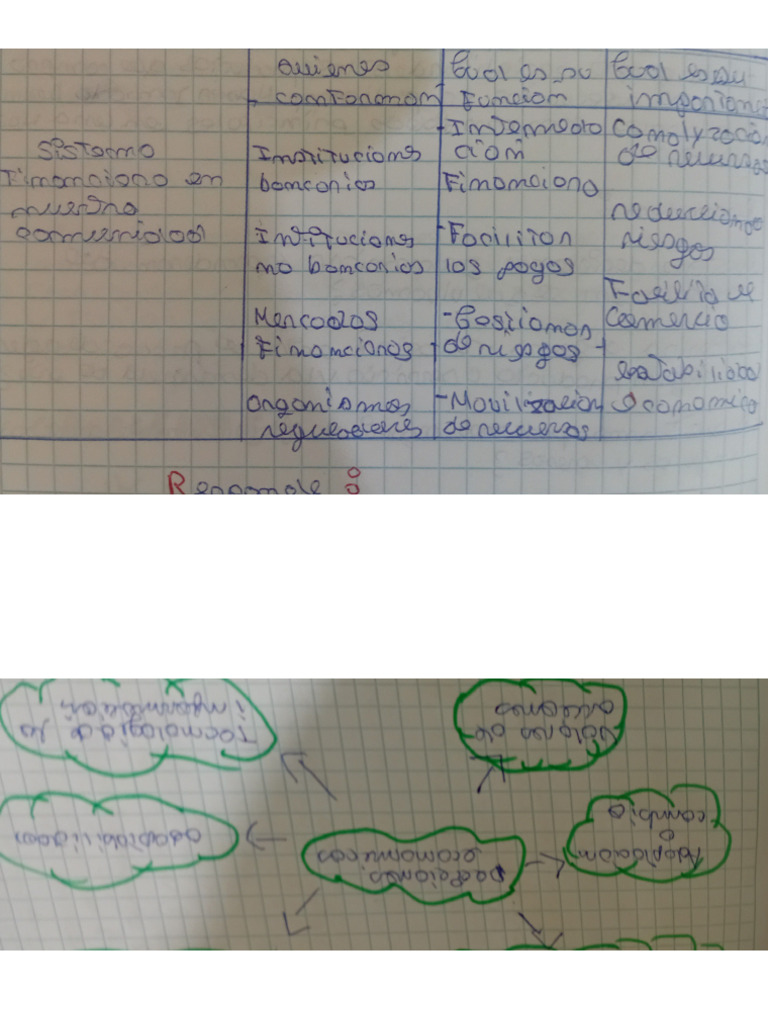 quienes
conforman
Cual es su
Funcion
Cual es su
importanc
Sistema
Financiero en
nuestra
comunidad
Instituciones
bancarias
Instituciones
no bancarias
Mercados
Financieros
Organismos
reguladores
- Intermedia
ción
Financiera
- Facilitan
los pagos
- Gestionan
de riesgos
- Movilizacion
de recursos
de recursos
riesgos
Facilita el
Comercio
estabilidad
economica
Responde :
Tecnologia de la
información
Valores de
acciones
adaptabilidad
economicas
Adaptación
cambio